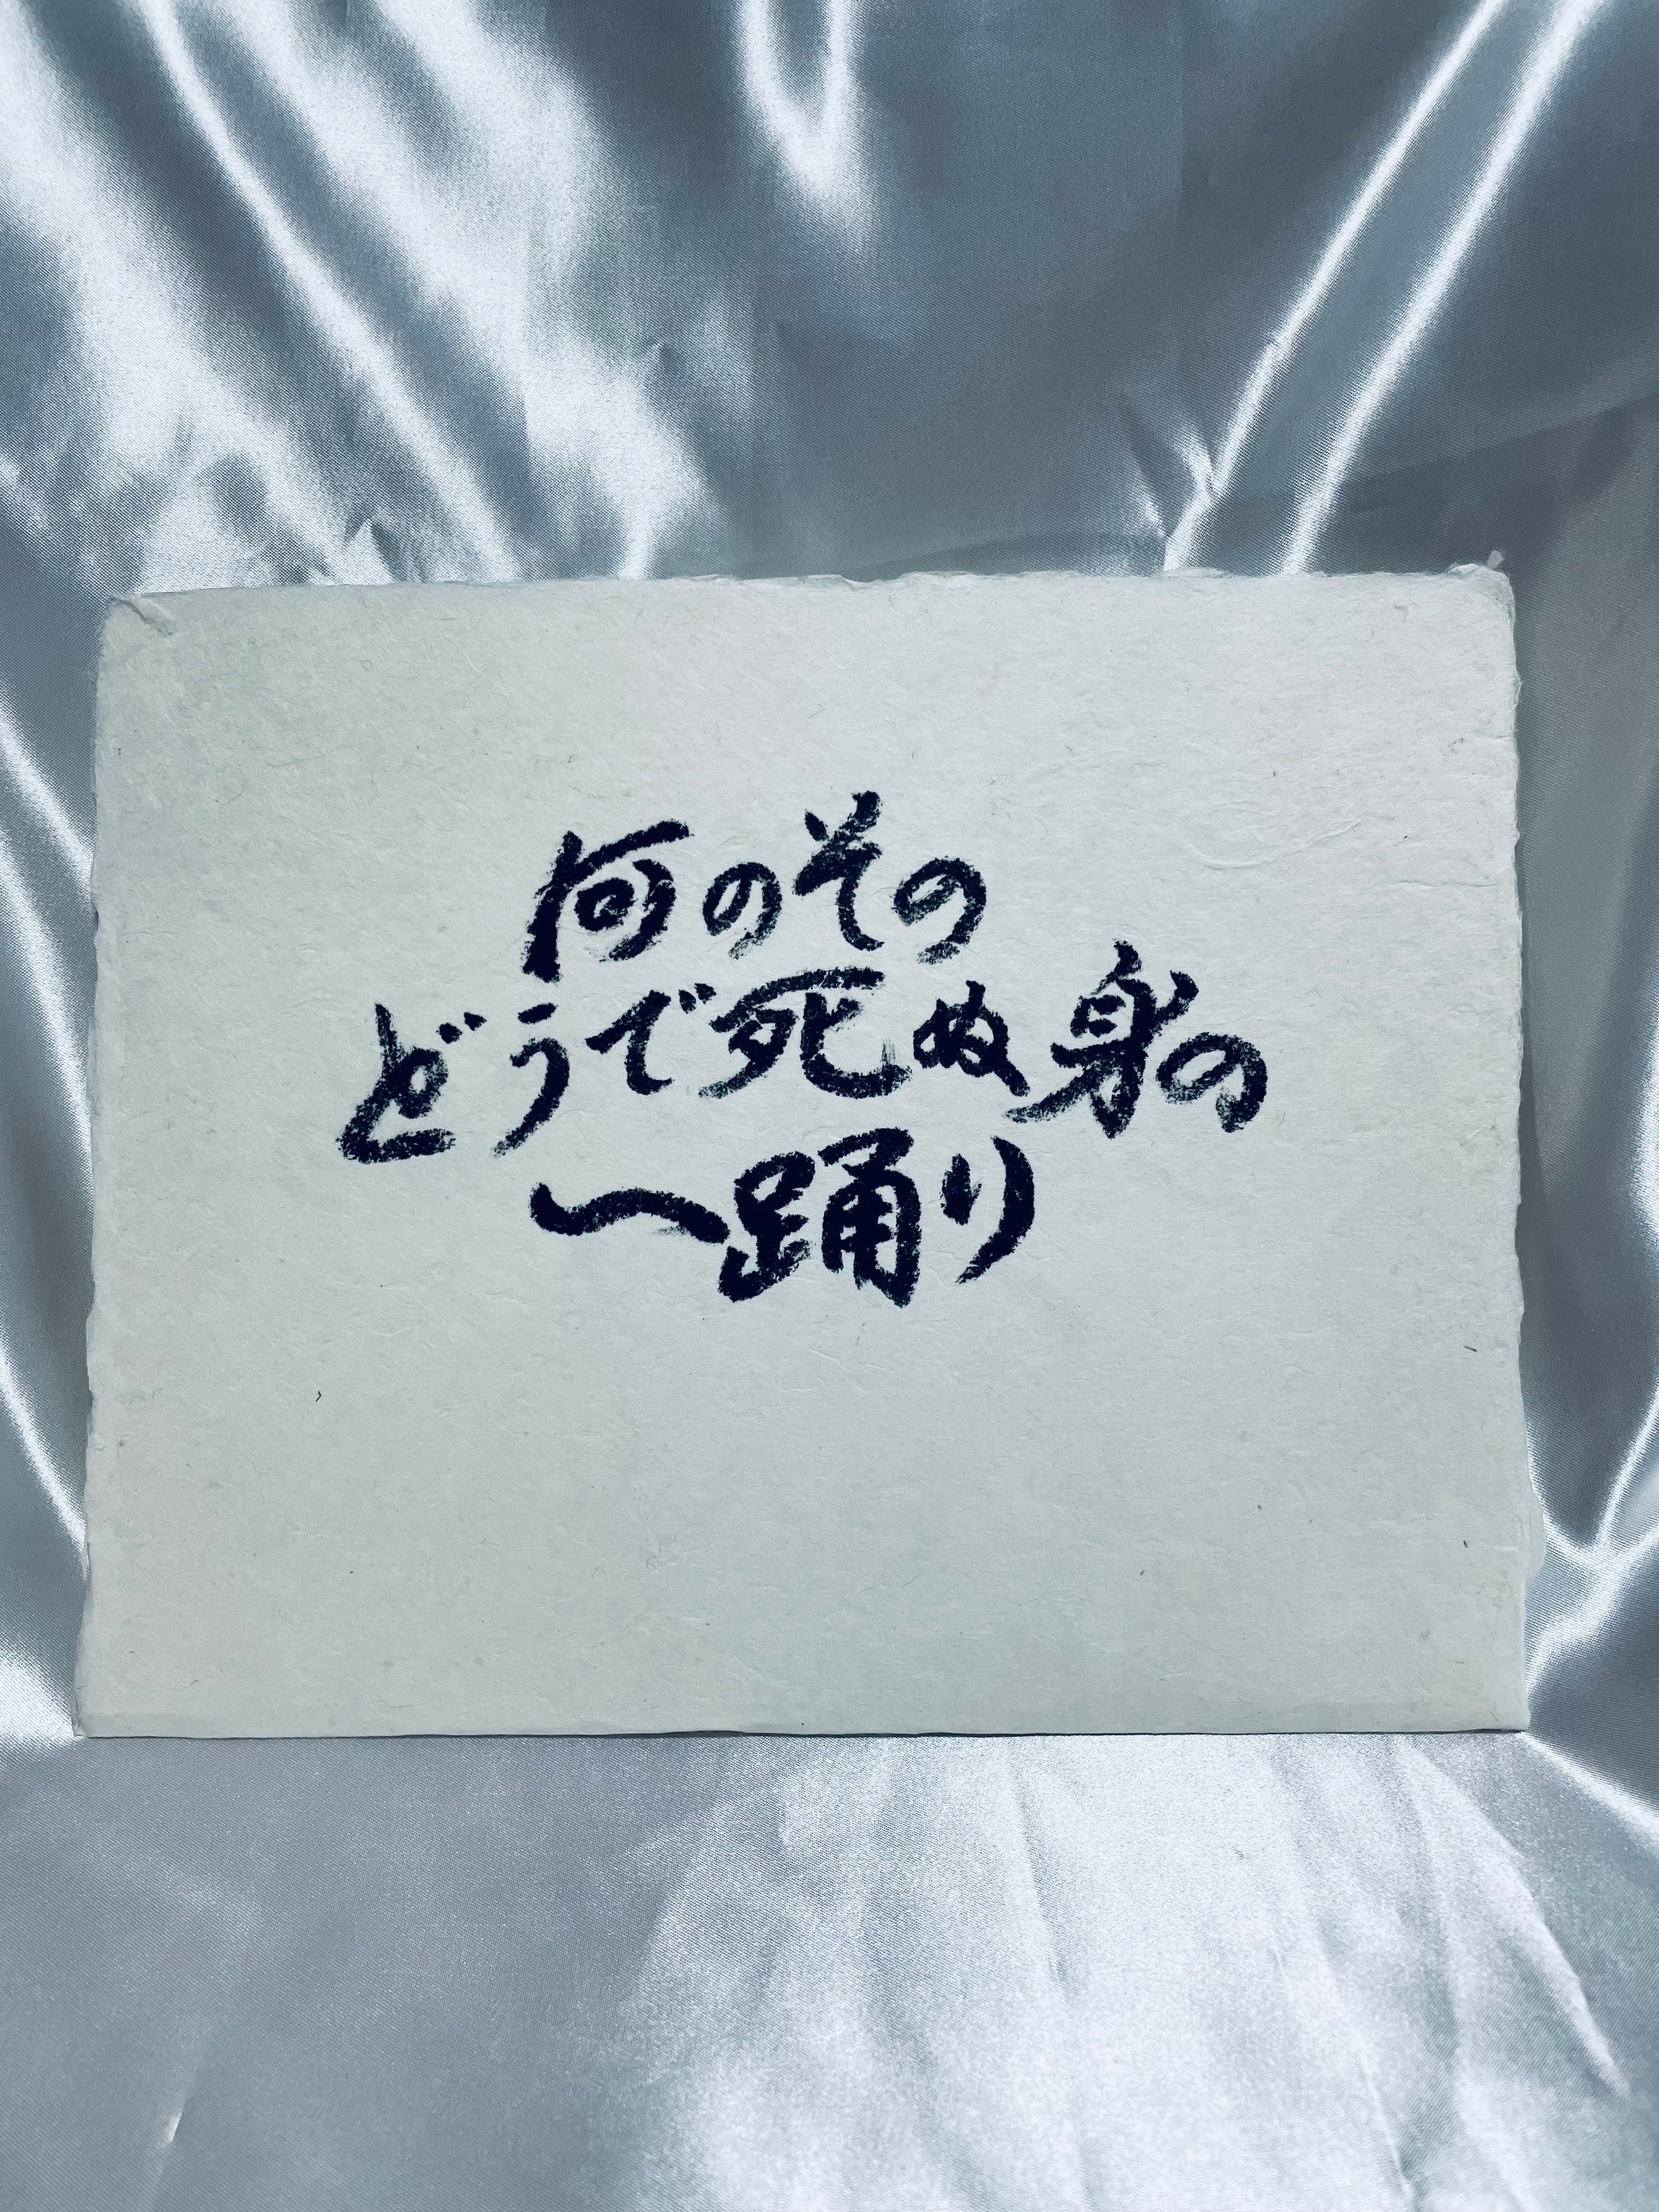 何のその
どうで死ぬ身の
一踊り